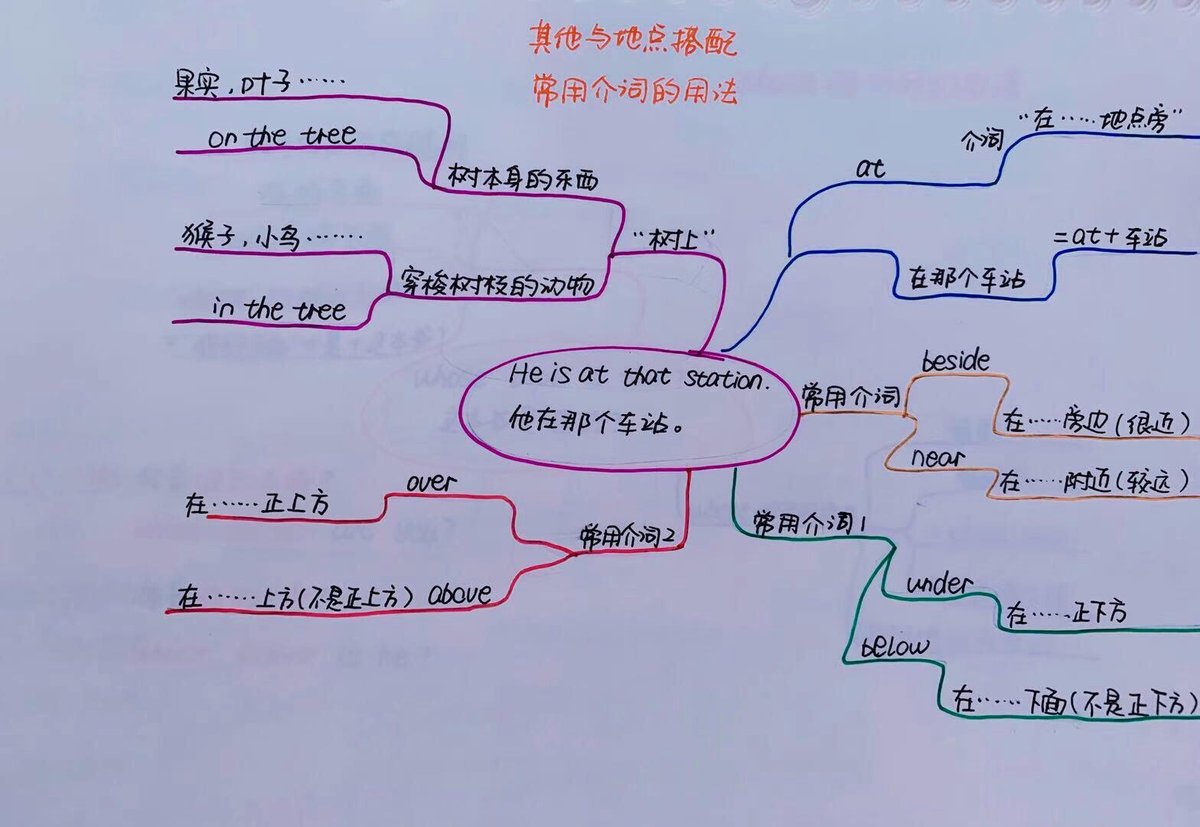 其他与地点搭配
常用介词的用法
果实,叶子……
on the tree
树本身的东西
猴子,小鸟……
in the tree
穿梭树枝的动物
"树上"
at
介词
"在……地点旁"
在那个车站
=at+车站
He is at that station.
他在那个车站。
常用介词
beside
在……旁边(很近)
near
在……附近(较远)
常用介词1
under
在……正下方
below
在……下面(不是正下方)
常用介词2
over
在……正上方
above
在……上方(不是正上方)